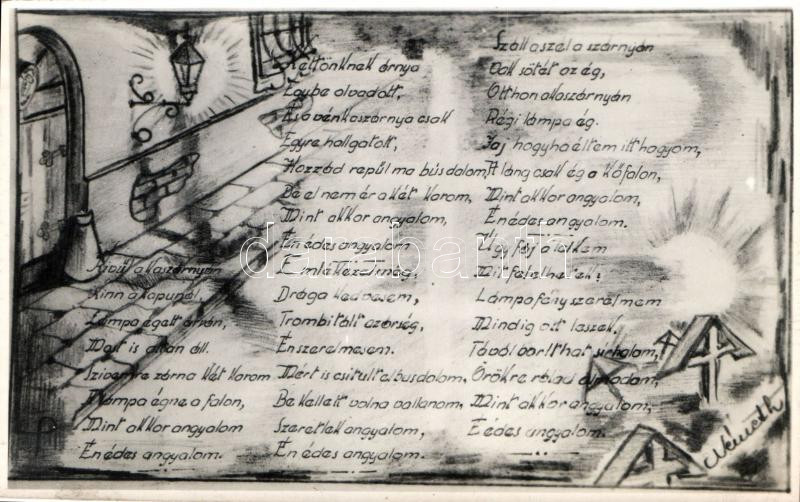 Kivül a kaszárnyán
Kinn a kapunál,
Lámpa égett árván,
Most is ottan áll.
Szivemre zárna két karom
S lámpa égne a falon,
Mint akkor angyalom
Én édes angyalom.
Kettönknek árnya
Egybe olvadott,
És a vén kaszárnya csak
Egyre hallgatott,
Hozzád repül ma bús dalom,
Be el nem ér a két karom,
Mint akkor angyalom,
Én édes angyalom
Emlékezel még,
Drága kedvesem,
Trombitált az őrség,
Én szerelmesem.
Mért is csitult el bús dalom,
Be kellett volna vallanom,
Szeretlek angyalom,
Én édes angyalom.
Száll a szél a szárnyán
Vak sötét az ég,
Otthon a kaszárnyán
Régi lámpa ég.
Jaj hogyha éltem itt hagyom,
A láng csak ég a kőfalon,
Mint akkor angyalom,
Én édes angyalom.
Úgy fáj a lelkem
Mit felelhetek?
Lámpafény szerelmem
Mindig ott leszek,
Távol borithat sirhalom,
Örökre rólad álmodom,
Mint akkor angyalom,
É édes angyalom.
Németh
darabanth